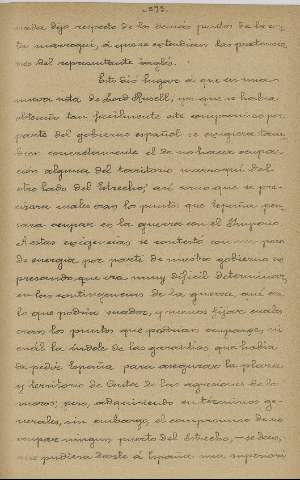 -273-
nada dejo respecto de los demás puntos de la cos-
ta marroquí, á que se extendían las pretensio-
nes del representante inglés.
Esto dió lugar á que en una
nueva nota de Lord Rusell, ya que se había
obtenido tan facilmente este compromiso por
parte del gobierno español se exigiera tam-
bien concretamente el de no hacer ocupa-
ción alguna del territorio marroquí del
otro lado del Estrecho, así como que se pre-
cisara cuales eran los puntos que España pen-
sara ocupar en la guerra con el Imperio.
A estas exigencias se contestó con un poco
de energía por parte de nuestro gobierno ex-
presando que era muy dificil determinar,
en las contingencias de la guerra, qué era
lo que podría suceder, y menos fijar cuales
eran los puntos que podrían ocuparse, ni
cuál la índole de las garantías que había
de pedir España para asegurar la plaza
y territorio de Ceuta de las agresiones de los
moros; pero, adquiriendo en términos ge-
nerales, sin embargo, el compromiso de no
ocupar ningun punto del Estrecho,
que pudiera darle á España una superiori